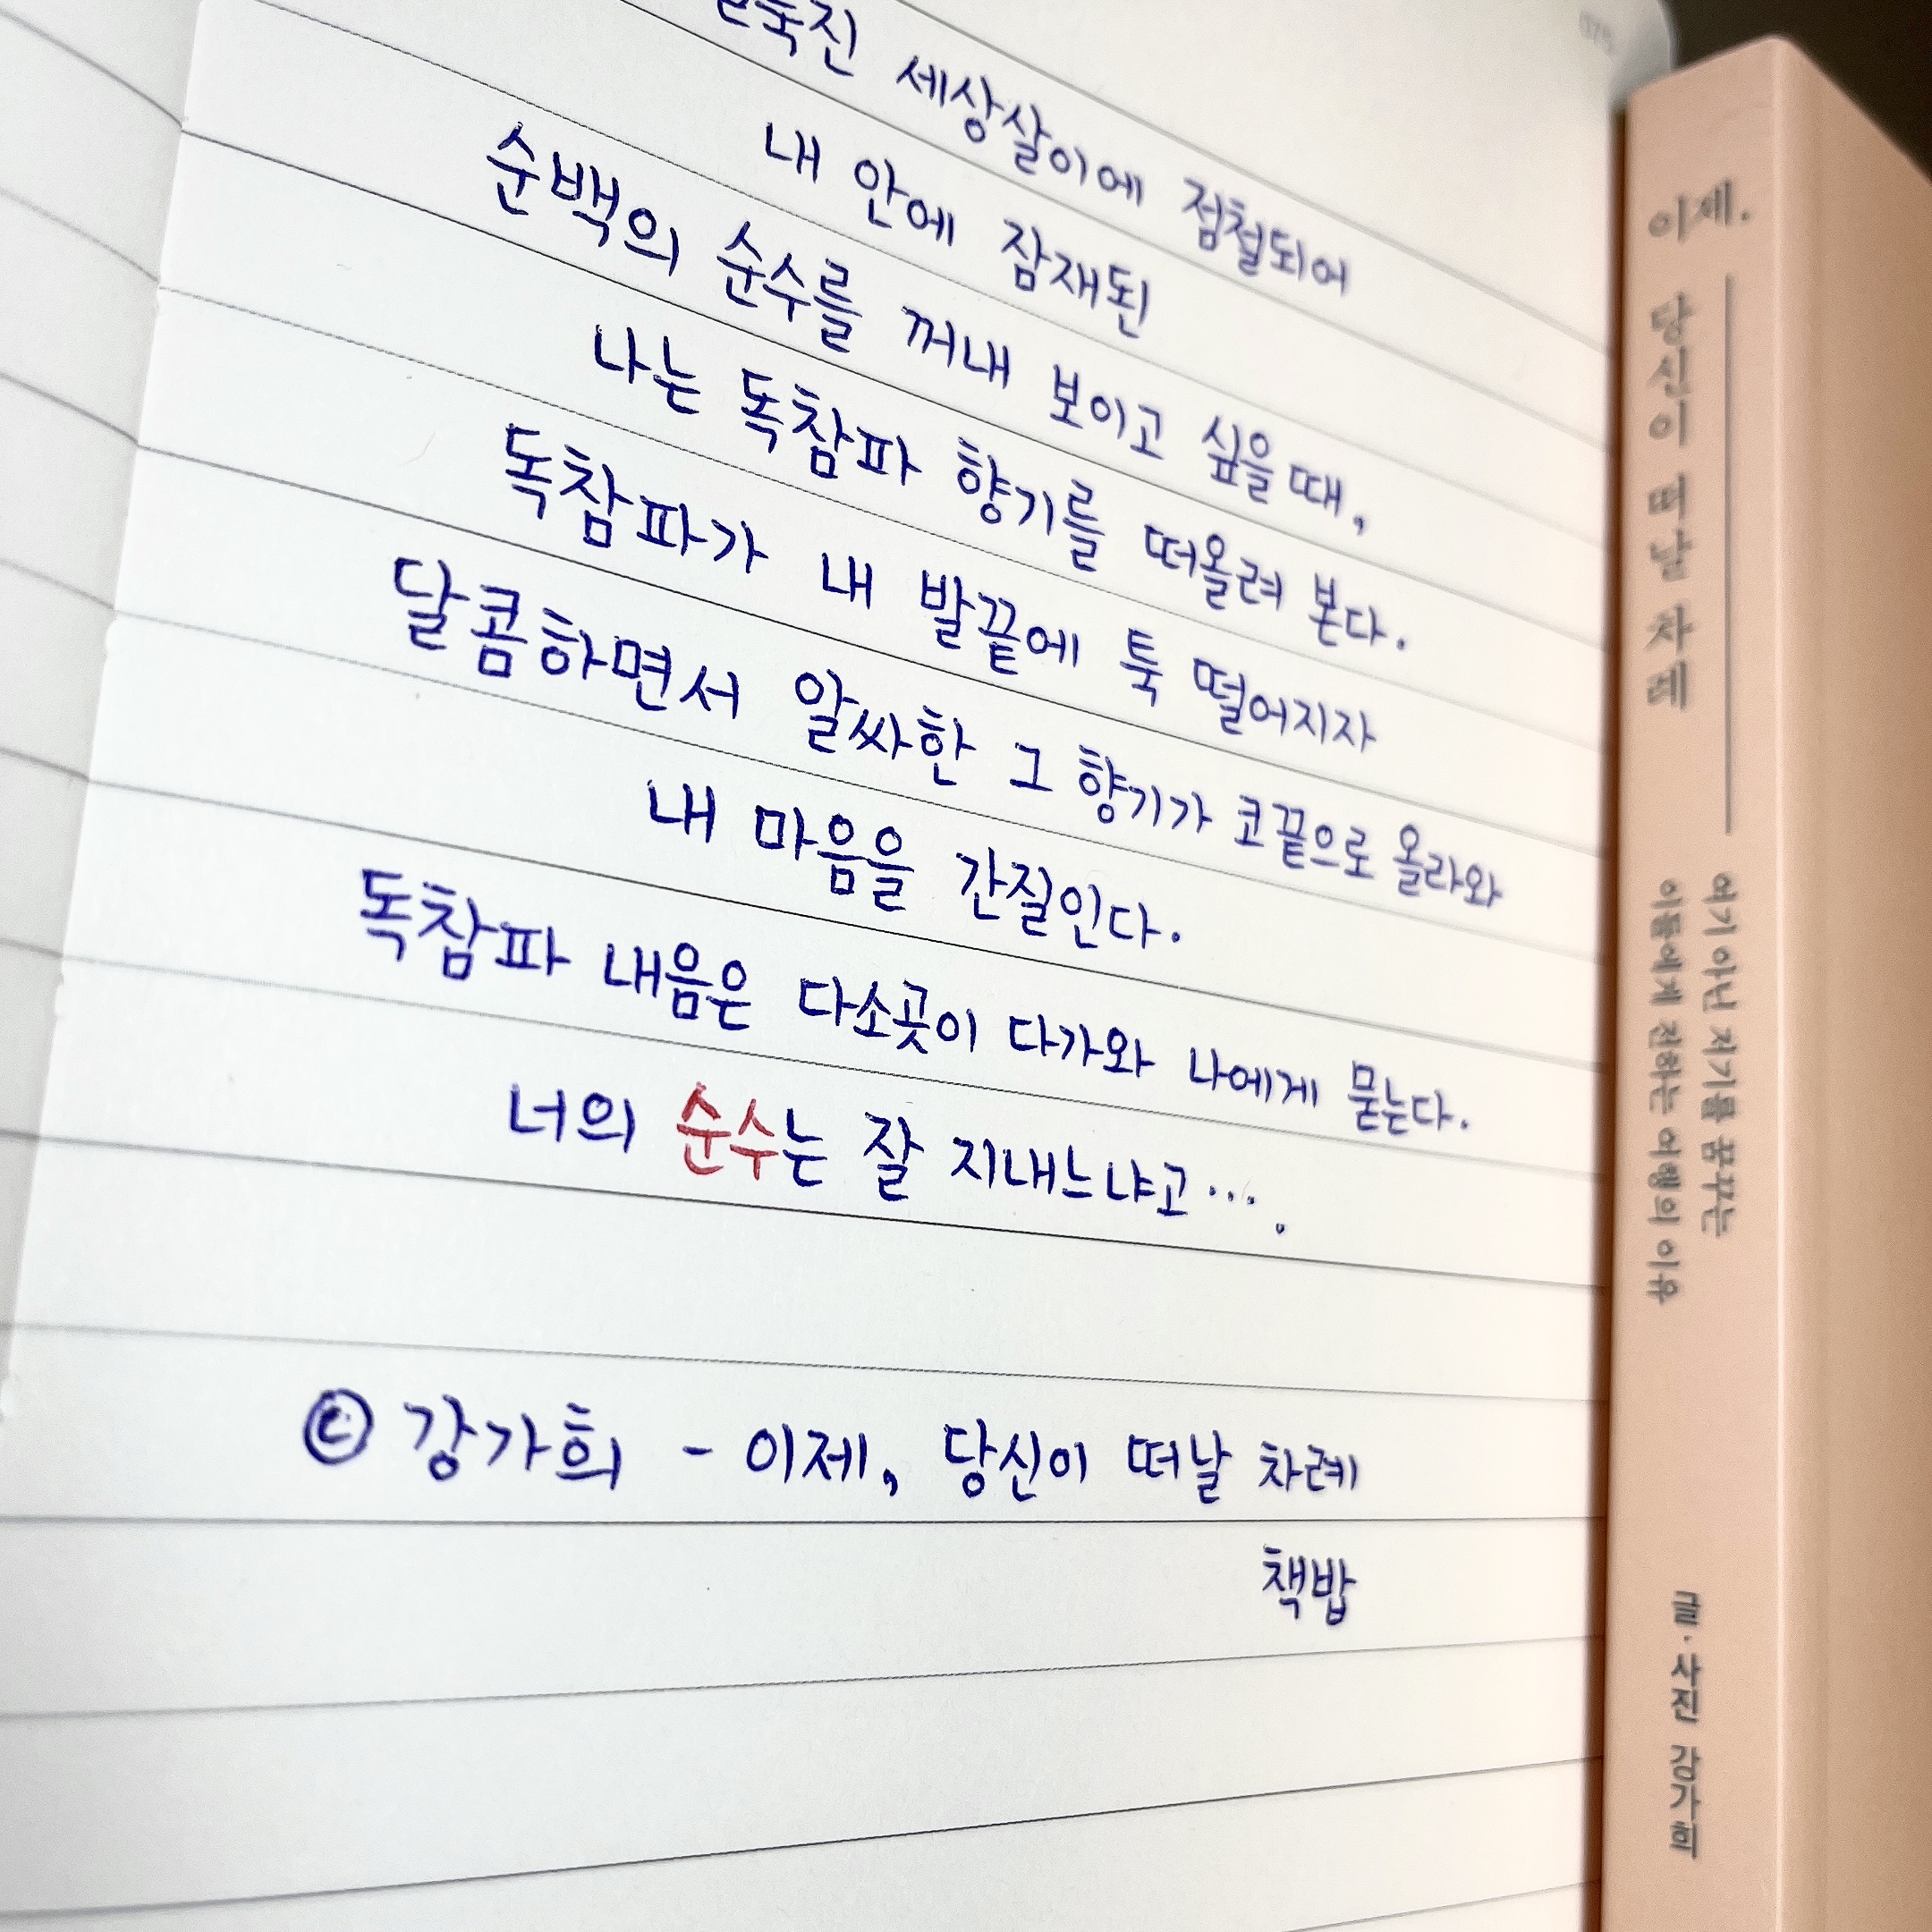 세상살이에 점철되어
내 안에 잠재된
순백의 순수를 꺼내 보이고 싶을 때,
나는 독참파 향기를 떠올려 본다.
독참파가 내 발끝에 툭 떨어지자
달콤하면서 알싸한 그 향기가 코끝으로 올라와
내 마음을 간질인다.
독참파 내음은 다소곳이 다가와 나에게 묻는다.
너의 순수는 잘 지내느냐고….
© 강가희 - 이제, 당신이 떠날 차례
책밥
이제,
당신이 떠날 차례
여기 아닌 저기를 꿈꾸는
이들에게 전하는 여행의 이유
글·사진 강가희